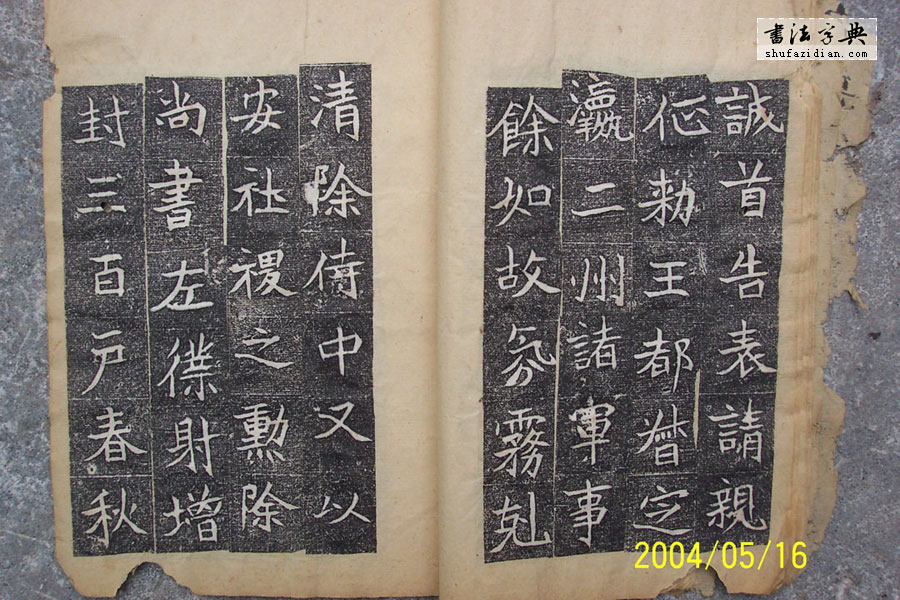 書法字典
shufazidian.com
誠首告表請親
征勑王都督定
瀛二州諸軍事
餘如故氛霧剋
清除侍中又以
安社稷之勳除
尚書左僕射增
封三百戶春秋
2004/05/16